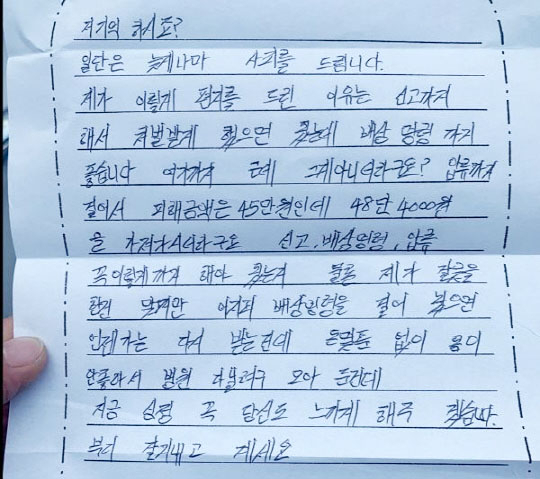 저 기억 하시죠?
일단은 늦게나마 사죄를 드립니다.
제가 이렇게 편지를 드린 이유는 신고까지
해서 처벌받게 했으면 됐는데 배상 명령 까지
좋습니다 여기까지 근데 그게아니더라구요? 압류까지
걸어서 피해금액은 45만원인데 48만 4000원
을 가져가시더라구요 신고, 배상명령, 압류
꼭이렇게까지 해야 했는지 물론 제가 잘못을
한건 맞지만 어차피 배상명령을 걸어 놨으면
언젠가는 다시 받는건데 몸이
안좋아서 병원 갈려구 모아 둔건데
지금 심정 꼭 당신도 느끼게 해주 겠습니다.
부디 잘지내고 계세요